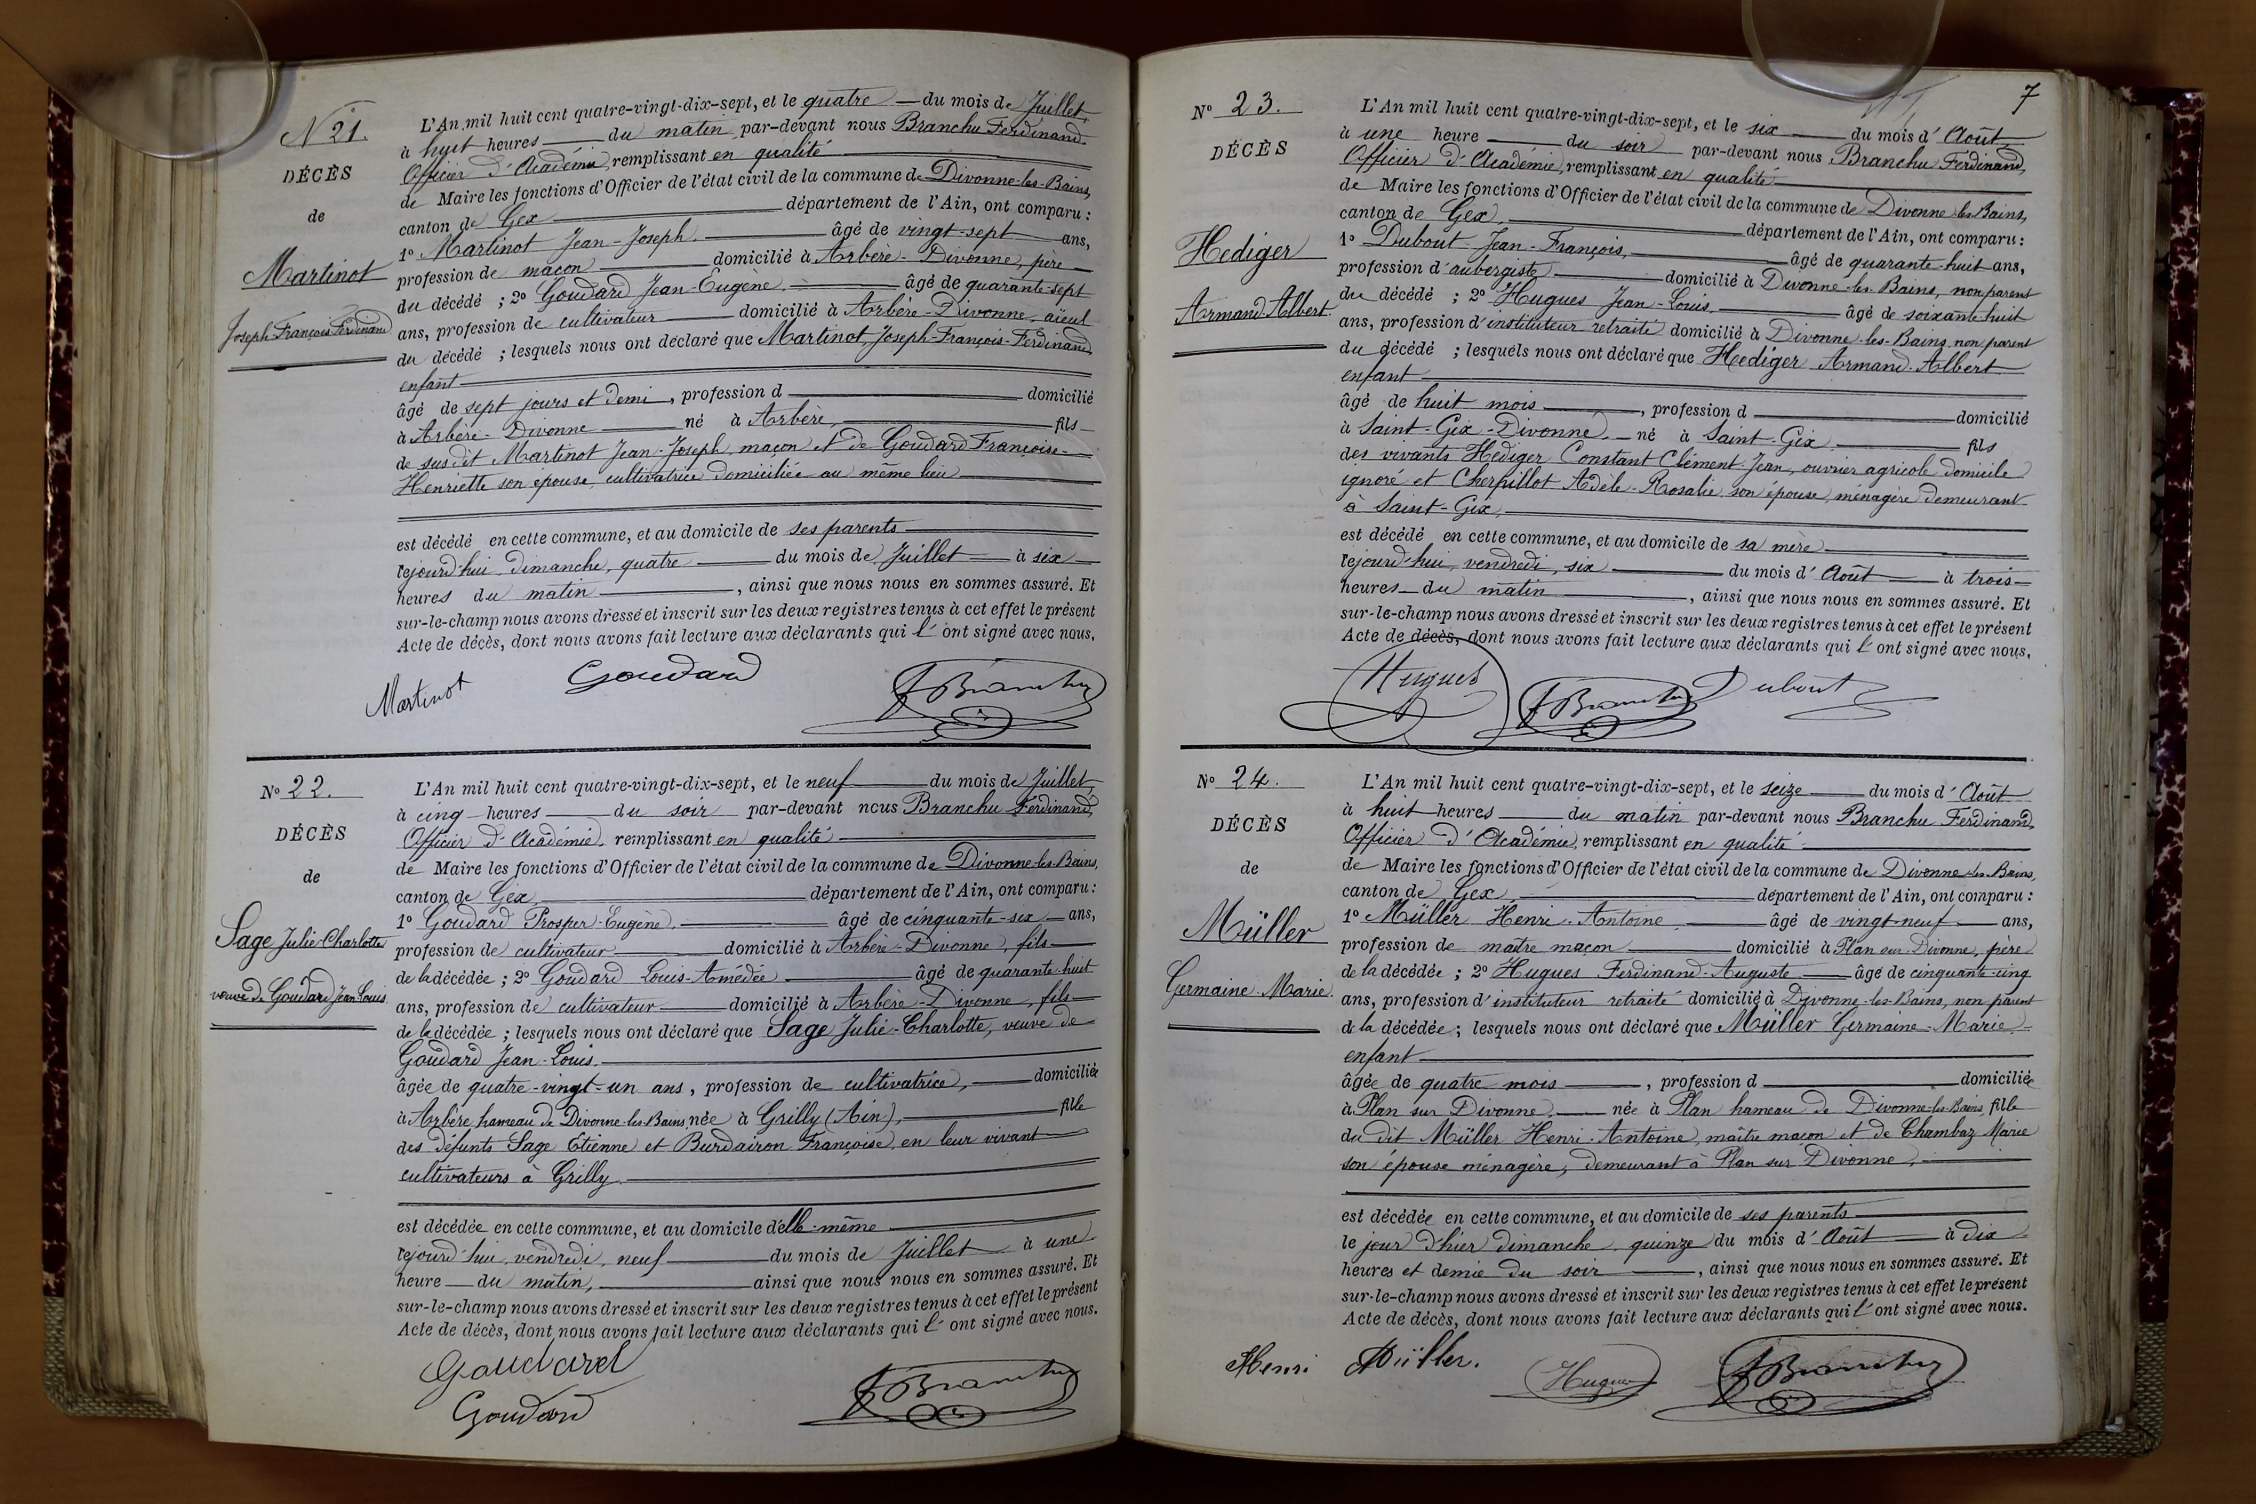 N° 21.
DÉCÈS
de
Martinot
Joseph François Ferdinand
L'An mil huit cent quatre-vingt-dix-sept, et le quatre du mois de Juillet,
à huit heures du matin par-devant nous Branchu Ferdinand
Officier d'Académie, remplissant en qualité
de Maire les fonctions d'Officier de l'état civil de la commune de Divonne-les-Bains,
canton de Gex département de l'Ain, ont comparu :
1° Martinot Jean-Joseph. âgé de vingt-sept ans,
profession de maçon domicilié à Arbère-Divonne, père
du décédé ; 2° Goudard Jean-Eugène. âgé de quarante-sept
ans, profession de cultivateur domicilié à Arbère-Divonne, aïeul
du décédé ; lesquels nous ont déclaré que Martinot, Joseph-François-Ferdinand
enfant
âgé de sept jours et demi, profession d domicilié
à Arbère-Divonne né à Arbère, fils
de susdit Martinot Jean-Joseph, maçon et de Goudard Françoise-
Henriette son épouse, cultivatrice domiciliée au même lieu
est décédé en cette commune, et au domicile de ses parents
cejourd'hui dimanche, quatre du mois de Juillet à six
heures du matin, ainsi que nous nous en sommes assuré. Et
sur-le-champ nous avons dressé et inscrit sur les deux registres tenus à cet effet le présent
Acte de décès, dont nous avons fait lecture aux déclarants qui l'ont signé avec nous.
Martinot Goudard F Branchu
N° 22.
DÉCÈS
de
Sage Julie-Charlotte
veuve de Goudard Jean Louis
L'An mil huit cent quatre-vingt-dix-sept, et le neuf du mois de Juillet,
à cinq heures du soir par-devant nous Branchu Ferdinand,
Officier d'Académie, remplissant en qualité
de Maire les fonctions d'Officier de l'état civil de la commune de Divonne-les-Bains,
canton de Gex, département de l'Ain, ont comparu :
1° Goudard Prosper-Eugène. âgé de cinquante-six ans,
profession de cultivateur domicilié à Arbère-Divonne, fils
de la décédée ; 2° Goudard Louis-Amédée âgé de quarante-huit
ans, profession de cultivateur domicilié à Arbère-Divonne, fils
de la décédée ; lesquels nous ont déclaré que Sage Julie-Charlotte, veuve de
Goudard Jean-Louis.
âgée de quatre-vingt-un ans, profession de cultivatrice, domiciliée
à Arbère hameau de Divonne-les-Bains, née à Grilly (Ain), fille
des défunts Sage Etienne et Burdairon Françoise, en leur vivant
cultivateurs à Grilly.
est décédée en cette commune, et au domicile d'elle-même
cejourd'hui vendredi, neuf du mois de Juillet à une
heure du matin, ainsi que nous nous en sommes assuré. Et
sur-le-champ nous avons dressé et inscrit sur les deux registres tenus à cet effet le présent
Acte de décès, dont nous avons fait lecture aux déclarants qui l'ont signé avec nous.
Goudard
Goudard F Branchu
7
N° 23.
DÉCÈS
Hediger
Armand-Albert
L'An mil huit cent quatre-vingt-dix-sept, et le six du mois d'Août
à une heure du soir par-devant nous Branchu Ferdinand,
Officier d'Académie, remplissant en qualité
de Maire les fonctions d'Officier de l'état civil de la commune de Divonne-les-Bains,
canton de Gex, département de l'Ain, ont comparu :
1° Dubout Jean-François, âgé de quarante-huit ans,
profession d'aubergiste domicilié à Divonne-les-Bains, non parent
du décédé ; 2° Hugues Jean-Louis. âgé de soixante huit
ans, profession d'instituteur retraité domicilié à Divonne-les-Bains, non parent
du décédé ; lesquels nous ont déclaré que Hediger Armand-Albert
enfant
âgé de huit mois, profession d domicilié
à Saint-Gix-Divonne né à Saint-Gix fils
des vivants Hediger Constant Clément-Jean, ouvrier agricole domicile
ignoré et Cherpillot Adèle-Rosalie son épouse, ménagère demeurant
à Saint-Gix,
est décédé en cette commune, et au domicile de sa mère
cejourd'hui vendredi, six du mois d'Août à trois
heures du matin, ainsi que nous nous en sommes assuré. Et
sur-le-champ nous avons dressé et inscrit sur les deux registres tenus à cet effet le présent
Acte de décès, dont nous avons fait lecture aux déclarants qui l'ont signé avec nous.
Hugues F Branchu Dubout
N° 24.
DÉCÈS
de
Müller
Germaine-Marie.
L'An mil huit cent quatre-vingt-dix-sept, et le seize du mois d'Août
à huit heures du matin par-devant nous Branchu Ferdinand,
Officier d'Académie, remplissant en qualité
de Maire les fonctions d'Officier de l'état civil de la commune de Divonne-les-Bains,
canton de Gex, département de l'Ain, ont comparu :
1° Müller Henri-Antoine âgé de vingt-neuf ans,
profession de maître maçon domicilié à Plan sur Divonne, père
de la décédée ; 2° Hugues Ferdinand-Auguste âgé de cinquante-cinq
ans, profession d'instituteur retraité domicilié à Divonne-les-Bains, non parent
de la décédée ; lesquels nous ont déclaré que Müller Germaine-Marie
enfant
âgée de quatre mois, profession d domiciliée
à Plan sur Divonne née à Plan hameau de Divonne-les-Bains, fille
du dit Müller Henri-Antoine, maître maçon et de Chambaz Marie
son épouse ménagère, demeurant à Plan sur Divonne,
est décédée en cette commune, et au domicile de ses parents
le jour d'hier dimanche quinze du mois d'Août à dix
heures et demie du soir, ainsi que nous nous en sommes assuré. Et
sur-le-champ nous avons dressé et inscrit sur les deux registres tenus à cet effet le présent
Acte de décès, dont nous avons fait lecture aux déclarants qui l'ont signé avec nous.
Henri Müller. Hugues F Branchu